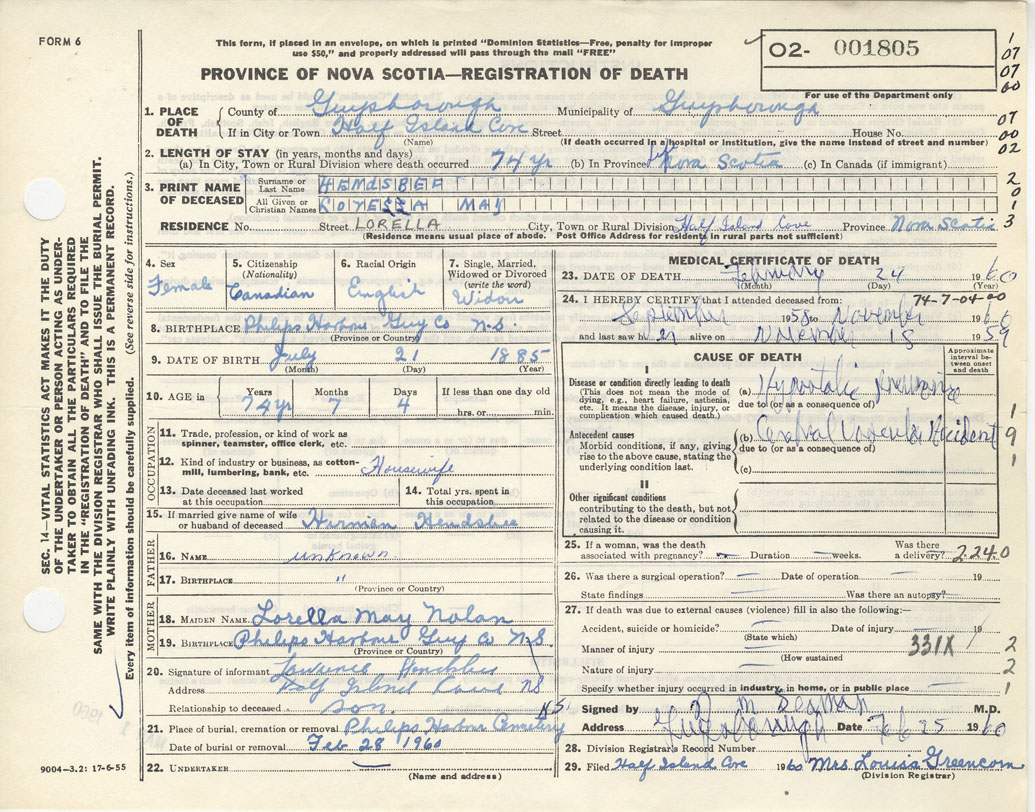 FORM 6
This form, if placed in an envelope, on which is printed "Dominion Statistics—Free, penalty for improper
use $50," and properly addressed will pass through the mail "FREE"
O2- 001805
For use of the Department only
PROVINCE OF NOVA SCOTIA—REGISTRATION OF DEATH
1
07
07
00
07
00
02
2
0
1
3
1. PLACE OF DEATH
County of Guysborough Municipality of Guysborough
If in City or Town Half Island Cove Street House No.
(Name) (If death occurred in a hospital or institution, give the name instead of street and number)
2. LENGTH OF STAY (in years, months and days)
(a) In City, Town or Rural Division where death occurred 74 yr (b) In Province Nova Scotia (c) In Canada (if immigrant)
3. PRINT NAME OF DECEASED
Surname or Last Name HEMDSBEE
All Given or Christian Names MAY
RESIDENCE No. Street LORELLA City, Town or Rural Division Half Island Cove Province Nova Scotia
(Residence means usual place of abode. Post Office Address for residents in rural parts not sufficient)
4. Sex
Female
5. Citizenship
(Nationality)
Canadian
6. Racial Origin
English
7. Single, Married, Widowed or Divorced
(write the word)
Widow
8. BIRTHPLACE Philips Harbour Guy Co N.S.
(Province or Country)
9. DATE OF BIRTH July 21 1885
(Month) (Day) (Year)
10. AGE in
Years Months Days If less than one day old
74 yr 7 4 hrs. or min.
OCCUPATION
11. Trade, profession, or kind of work as
spinner, teamster, office clerk, etc.
12. Kind of industry or business, as cotton-
mill, lumbering, bank, etc. Housewife
13. Date deceased last worked
at this occupation
14. Total yrs. spent in
this occupation
15. If married give name of wife
or husband of deceased Hirman Hemdsbee
FATHER
16. NAME unknown
17. BIRTHPLACE "
(Province or Country)
MOTHER
18. MAIDEN NAME Lorella May Nolan
19. BIRTHPLACE Philips Harbour Guy Co N.S.
(Province or Country)
20. Signature of informant Lawrence
Address Half Island Cove NS
Relationship to deceased son.
21. Place of burial, cremation or removal Philips Harbour Cemetery N.S.
Date of burial or removal Feb 28 1960
22. UNDERTAKER
(Name and address)
MEDICAL CERTIFICATE OF DEATH
23. DATE OF DEATH February 24 1960
(Month) (Day)
74-7-04-00
24. I HEREBY CERTIFY that I attended deceased from:
September 1958 to November 19
and last saw her alive on November 18 1959
CAUSE OF DEATH
Approximate interval between onset and death
I
Disease or condition directly leading to death
(This does not mean the mode of
dying, e.g., heart failure, asthenia,
etc. It means the disease, injury, or
complication which caused death.)
(a) Hypostatic Pneumonia
due to (or as a consequence of)
Antecedent causes
Morbid conditions, if any, giving
rise to the above cause, stating the
underlying condition last.
(b) Cerebral Vascular Accident
due to (or as a consequence of)
(c)
1
9
1
II
Other significant conditions
contributing to the death, but not
related to the disease or condition
causing it.
25. If a woman, was the death
associated with pregnancy? Duration weeks. Was there a delivery?
2240
26. Was there a surgical operation? Date of operation 19
State findings Was there an autopsy?
27. If death was due to external causes (violence) fill in also the following:—
Accident, suicide or homicide? Date of injury 19
(State which)
Manner of injury 331X 2
(How sustained
Nature of injury 2
Specify whether injury occurred in industry, in home, or in public place 1
Signed by M.D.
Address Guysborough Date Feb 25 1960
28. Division Registrar's Record Number
29. Filed Half Island Cove 1960 Mrs Louisa Greencorn
(Division Registrar)
SEC. 14—VITAL STATISTICS ACT MAKES IT THE DUTY
OF THE UNDERTAKER OR PERSON ACTING AS UNDER-
TAKER TO OBTAIN ALL THE PARTICULARS REQUIRED
IN THE "REGISTRATION OF DEATH" AND TO FILE THE
SAME WITH THE DIVISION REGISTRAR WHO SHALL ISSUE THE BURIAL PERMIT.
WRITE PLAINLY WITH UNFADING INK. THIS IS A PERMANENT RECORD.
Every item of information should be carefully supplied. (See reverse side for instructions.)
9004—3.2: 17-6-55